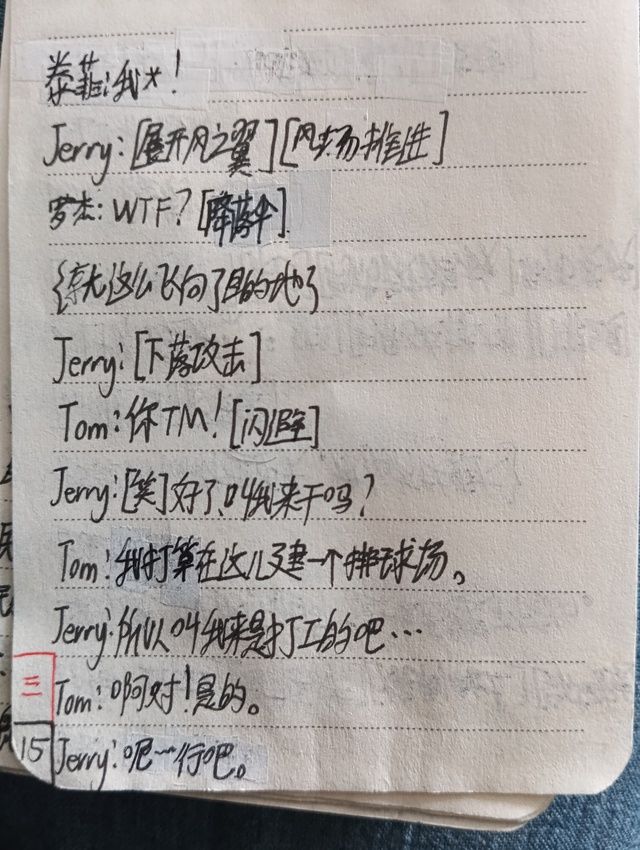 泰菲:我*!
Jerry:[展开风之翼][风场推进]
罗杰:WTF?[降落伞]
{就这么飞向了目的地}
Jerry:[下落攻击]
Tom:你TM![闪避]
Jerry:[笑]好了,叫我来干吗?
Tom:我打算在这儿建一个排球场。
Jerry:所以叫我来是打工的吧…
三
Tom:啊对!是的。
15
Jerry:呃…行吧。